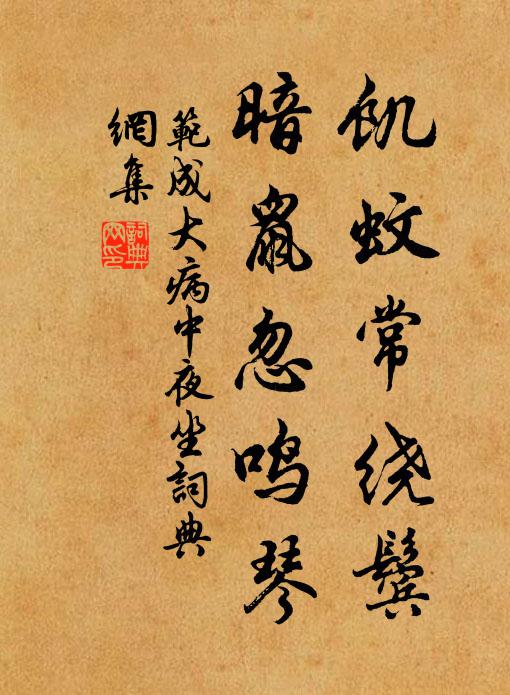 飢蚊常绕鬓
暗鼠忽鸣琴
範成大病中夜坐詞典
網集
詞典
网印